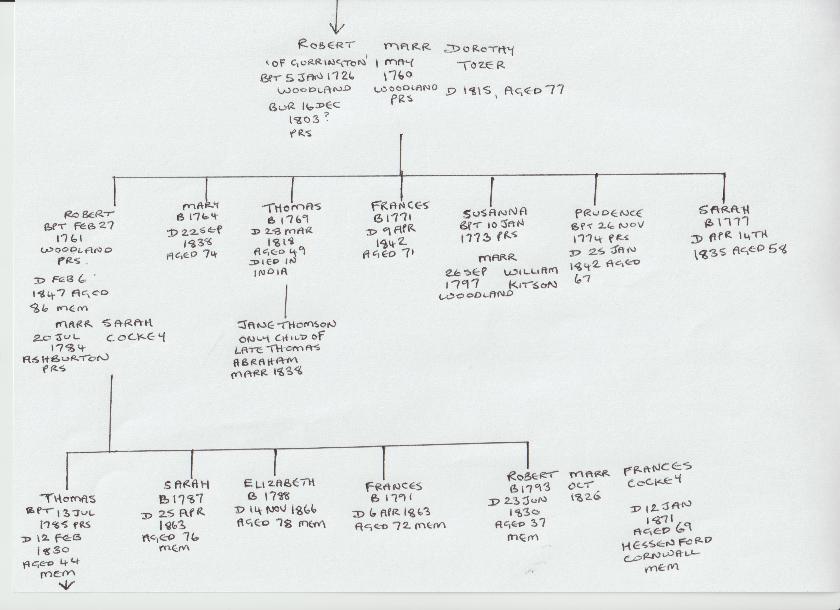 ROBERT MARR DOROTHY
'OF GURRINGTON' 1 MAY TOZER
BPT 5 JAN 1726 1760
WOODLAND WOODLAND D 1815, AGED 77
BUR 16 DEC PRS
1803?
PRS
ROBERT
BPT FEB 27
1761
WOODLAND
PRS.
D FEB 6
1847 AGED
86 MEM
MARR SARAH
20 JUL COCKEY
1784
ASHBURTON
PRS
MARY
B 1764
D 22 SEP
1838
AGED 74
THOMAS
B 1769
D 28 MAR
1818
AGED 49
DIED IN
INDIA
JANE THOMSON
ONLY CHILD OF
LATE THOMAS
ABRAHAM
MARR 1838
FRANCES
B 1771
D 9 APR
1842
AGED 71
SUSANNA
BPT 10 JAN
1773 PRS
MARR
26 SEP WILLIAM
1797 KITSON
WOODLAND
PRUDENCE
BPT 26 NOV
1774 PRS
D 25 JAN
1842 AGED
67
SARAH
B 1777
D APR 14TH
1835 AGED 58
THOMAS
BPT 13 JUL
1785 PRS
D 12 FEB
1830
AGED 44
MEM
SARAH
B 1787
D 25 APR
1863
AGED 76
MEM
ELIZABETH
B 1788
D 14 NOV 1866
AGED 78 MEM
FRANCES
B 1791
D 6 APR 1863
AGED 72 MEM
ROBERT MARR FRANCES
B 1793 OCT COCKEY
D 23 JUN 1826
1830
AGED 37
MEM
D 12 JAN
1871
AGED 69
HESSENFORD
CORNWALL
MEM